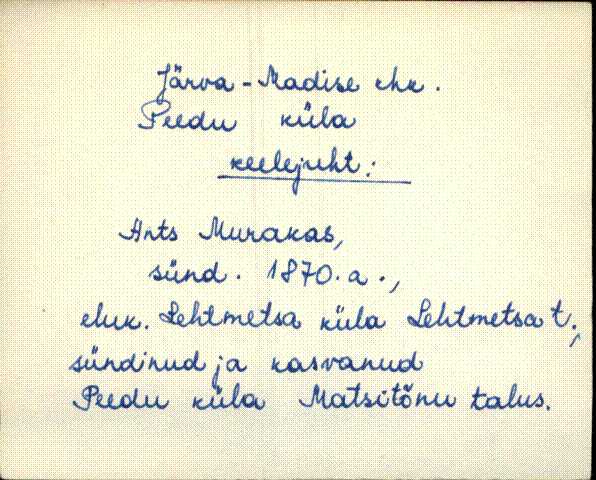 Järva-Madise khk.
Peedu küla
keelejuht:
Ants Murakas,
sünd. 1870.a.,
eluk. Lehtmetsa küla Lehtmetsa t.;
sündinud ja kasvanud
Peedu küla Matsitõnu talus.